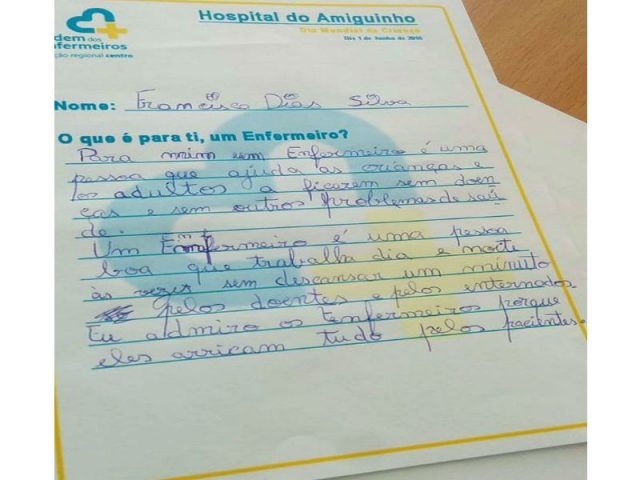 Hospital do Amiguinho
Dia Mundial da Criança
Dia 1 de Junho de
dem dos
fermeiros
ção regional centro
Nome: Francisca Dias Silva
O que é para ti, um Enfermeiro?
Para mim um Enfermeiro é uma
pessoa que ajuda as crianças e
os adultos a ficarem sem doen
ças e sem outros problemas de saú
de.
Um Enfermeiro é uma pessoa
boa que trabalha dia e noite
às vezes sem descansar um minuito
pelos doentes e pelos internados
Eu admiro os Enfermeiros porque
eles arricam tudo pelos pacientes.